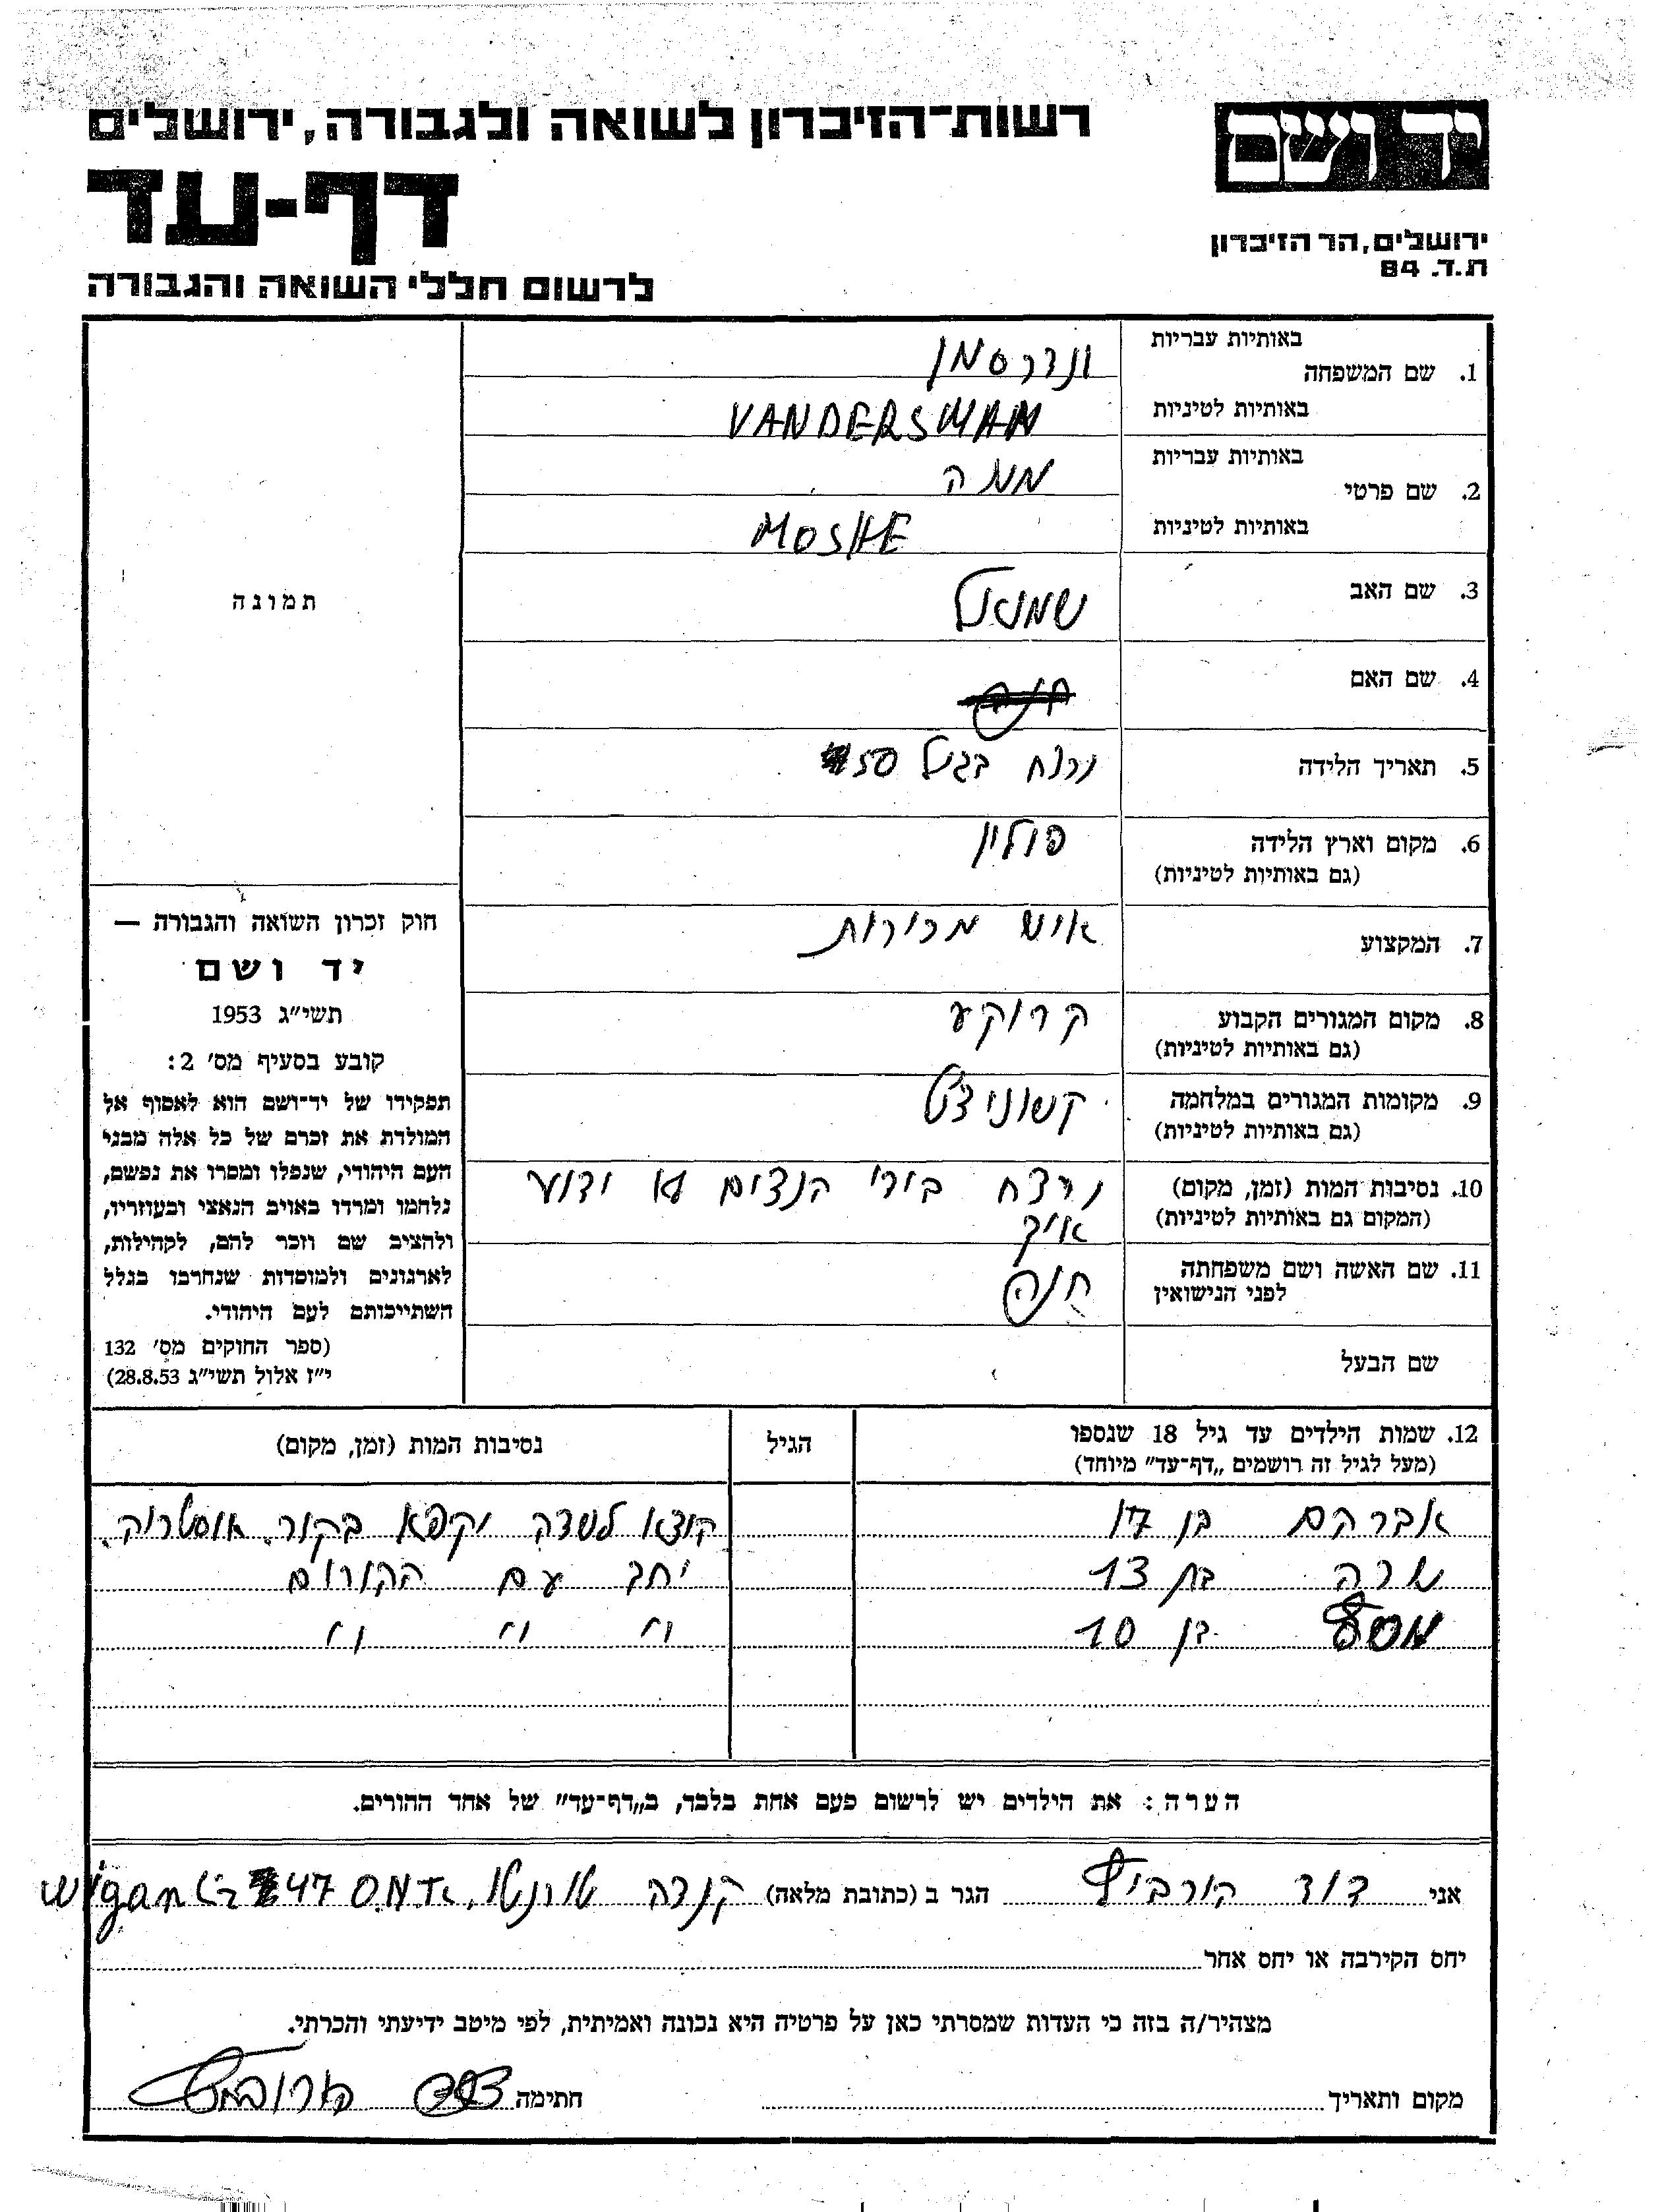 רשות־הזיכרון לשואה ולגבורה, ירושלים
יד ושם
דף-עד
ירושלים, הר הזיכרון
ת.ד. 84
לרשום חללי השואה והגבורה
באותיות עבריות
1. שם המשפחה ונדרסמן
באותיות לטיניות VANDERSMAN
באותיות עבריות
2. שם פרטי משה
באותיות לטיניות MOSHE
3. שם האב שמואל
4. שם האם
5. תאריך הלידה נרצח בגיל 50
6. מקום וארץ הלידה פולין
(גם באותיות לטיניות)
7. המקצוע איש מכירות
8. מקום המגורים הקבוע
(גם באותיות לטיניות)
9. מקומות המגורים במלחמה
(גם באותיות לטיניות)
10. נסיבות המות (זמן, מקום) נרצח בידי הנצים לא ידוע
(המקום גם באותיות לטיניות) איך
11. שם האשה ושם משפחתה חנה
לפני הנישואין
שם הבעל
תמונה
חוק זכרון השואה והגבורה —
יד ושם
תשי״ג 1953
קובע בסעיף מס׳ 2:
תפקידו של יד־ושם הוא לאסוף אל
המולדת את זכרם של כל אלה מבני
העם היהודי, שנפלו ומסרו את נפשם,
נלחמו ומרדו באויב הנאצי ובעוזריו,
ולהציב שם וזכר להם, לקהילות,
לארגונים ולמוסדות שנחרבו בגלל
השתייכותם לעם היהודי.
(ספר החוקים מס׳ 132
י״ז אלול תשי״ג 28.8.53)
12. שמות הילדים עד גיל 18 שנספו
(מעל לגיל זה רושמים „דף־עד״ מיוחד)
הגיל
נסיבות המות (זמן, מקום)
אברהם בן 17
שרה בת 13 יחד עם ההורים
בן 10 ״ ״ ״
הערה: את הילדים יש לרשום פעם אחת בלבד, ב„דף־עד״ של אחד ההורים.
אני דוד הורביץ הגר ב (כתובת מלאה) קנדה טורנטו, ONT. 47 wigan
יחס הקירבה או יחס אחר
מצהיר/ה בזה כי העדות שמסרתי כאן על פרטיה היא נכונה ואמיתית, לפי מיטב ידיעתי והכרתי.
מקום ותאריך חתימה דוד הורוביץ